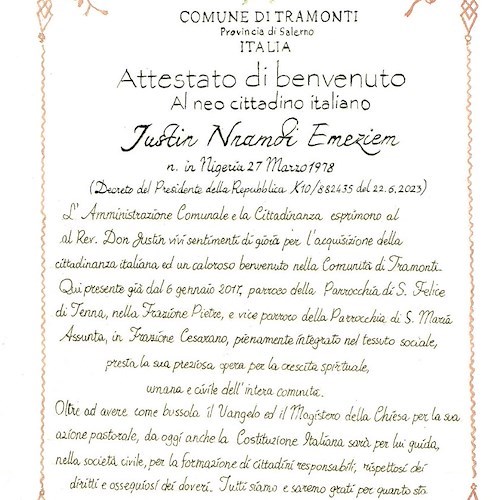 COMUNE DI TRAMONTI
Provincia di Salerno
ITALIA
Attestato di benvenuto
Al neo cittadino italiano
Justin Nnamdi Emeziem
n. in Nigeria 27 Marzo 1978
(Decreto del Presidente della Repubblica K10/882435 del 22.6.2023)
L' Amministrazione Comunale e la Cittadinanza esprimono al
al Rev. Don Justin vivi sentimenti di gioia per l'acquisizione della
cittadinanza italiana ed un caloroso benvenuto nella Comunità di Tramonti.
Qui presente già dal 6 gennaio 2017, parroco della Parrocchia di S. Felice
di Tenna, nella Frazione Pietre, e vice parroco della Parrocchia di S. Maria
Assunta, in Frazione Cesarano, pienamente integrato nel tessuto sociale,
presta la sua preziosa opera per la crescita spirituale,
umana e civile dell'intera comunità.
Oltre ad avere come bussola il Vangelo ed il Magistero della Chiesa per la sua
azione pastorale, da oggi anche la Costituzione Italiana sarà per lui guida,
nella società civile, per la formazione di cittadini responsabili, rispettosi dei
diritti e ossequiosi dei doveri. Tutti siamo e saremo grati per quanto sta